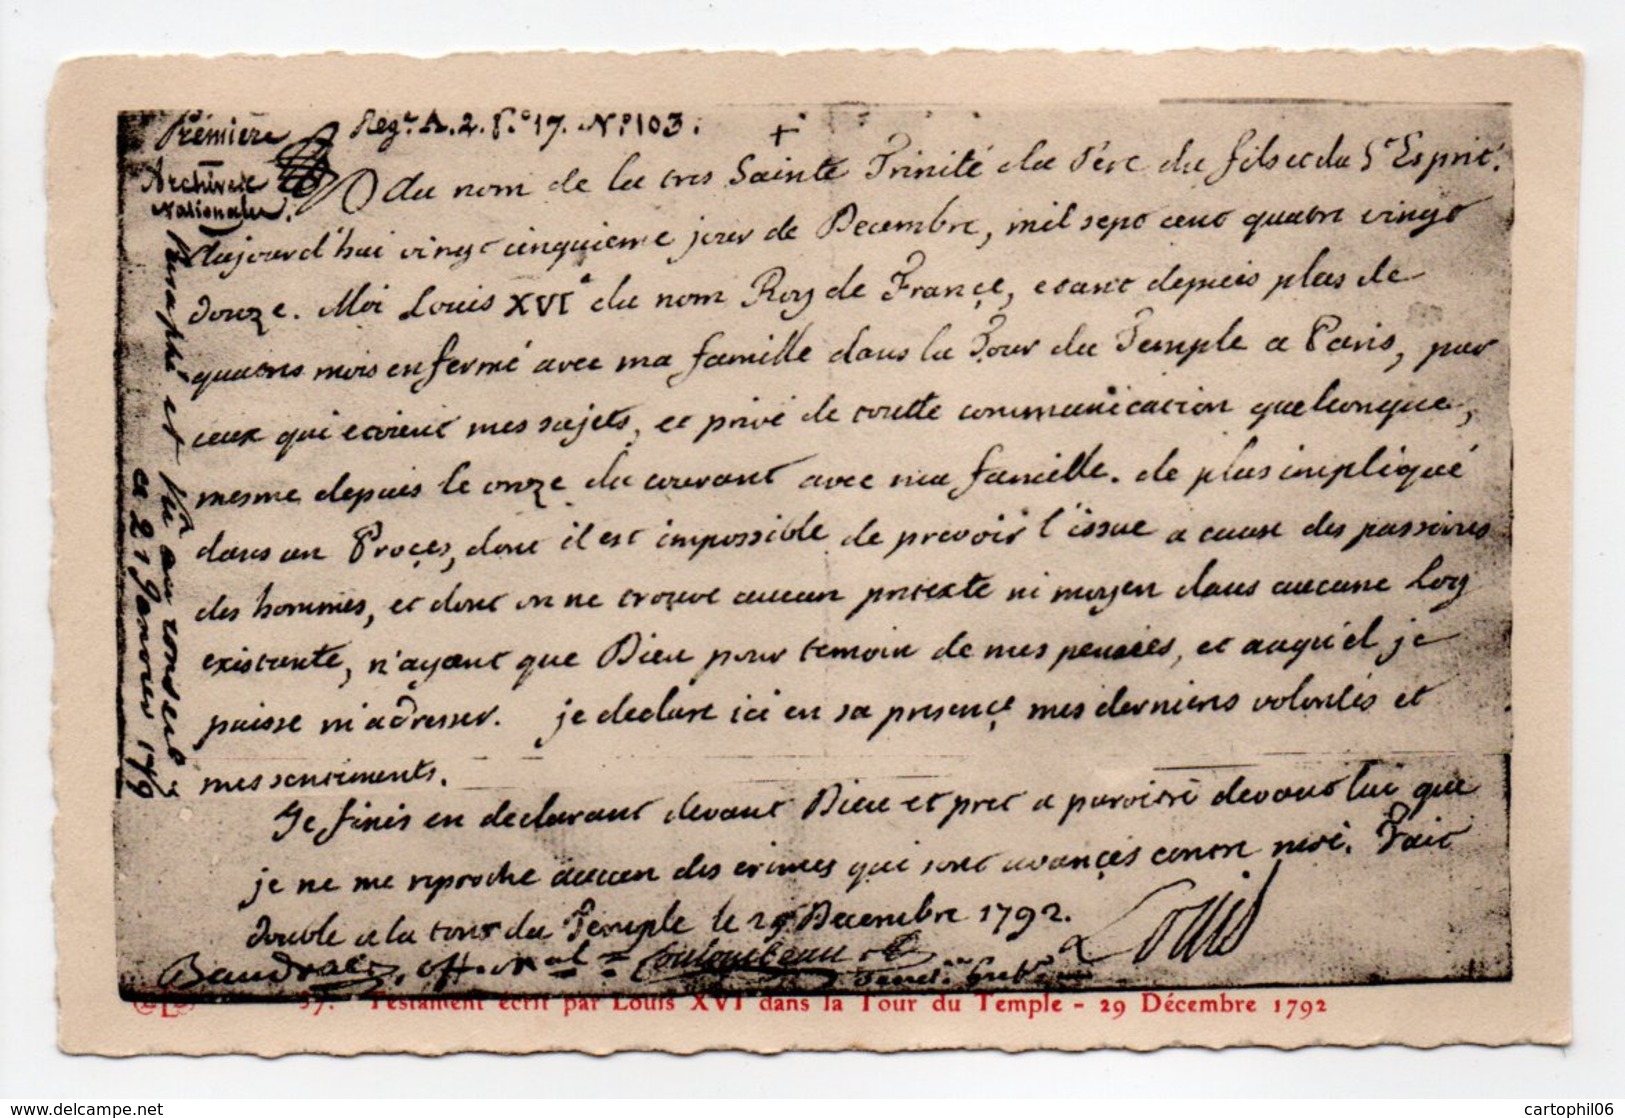 Première
Archives
Nationales.
Regre A. 2. F.° 17. N° 103.
+
Au nom de la tres Sainte Trinité du Pere du fils et du St Esprit.
Aujourd'hui vingt cinquieme jour de Decembre, mil sept cent quatre vingt
douze. Moi Louis XVIe du nom Roy de France, etant depuis plus de
quatre mois enfermé avec ma famille dans la Tour du Temple a Paris, par
ceux qui etoient mes sujets, et privé de toutte communication quelconque,
mesme depuis le onze du courant avec ma famille. de plus impliqué
dans un Proçes, dont il est impossible de prevoir l'issue a cause des passions
des hommes, et dont on ne trouve aucun pretexte ni moyen dans aucune Loy
existante, n'ayant que Dieu pour temoin de mes pensées, et auquel je
puisse m'adresser. je declare ici en sa presençe mes dernieres volontés et
mes sentiments.
Je finis en declarant devant Dieu et pret a paroitre devant lui que
je ne me reproche aucun des crimes qui sont avançés contre moi. Fait
double a la tour du Temple le 25 Decembre 1792.
Louis
Baudrais, off. mal = Coulombeau
Paraphé et
ce 21 Janvier 179
37. Testament écrit par Louis XVI dans la Tour du Temple - 29 Décembre 1792
https://www.delcampe.net
cartophil06